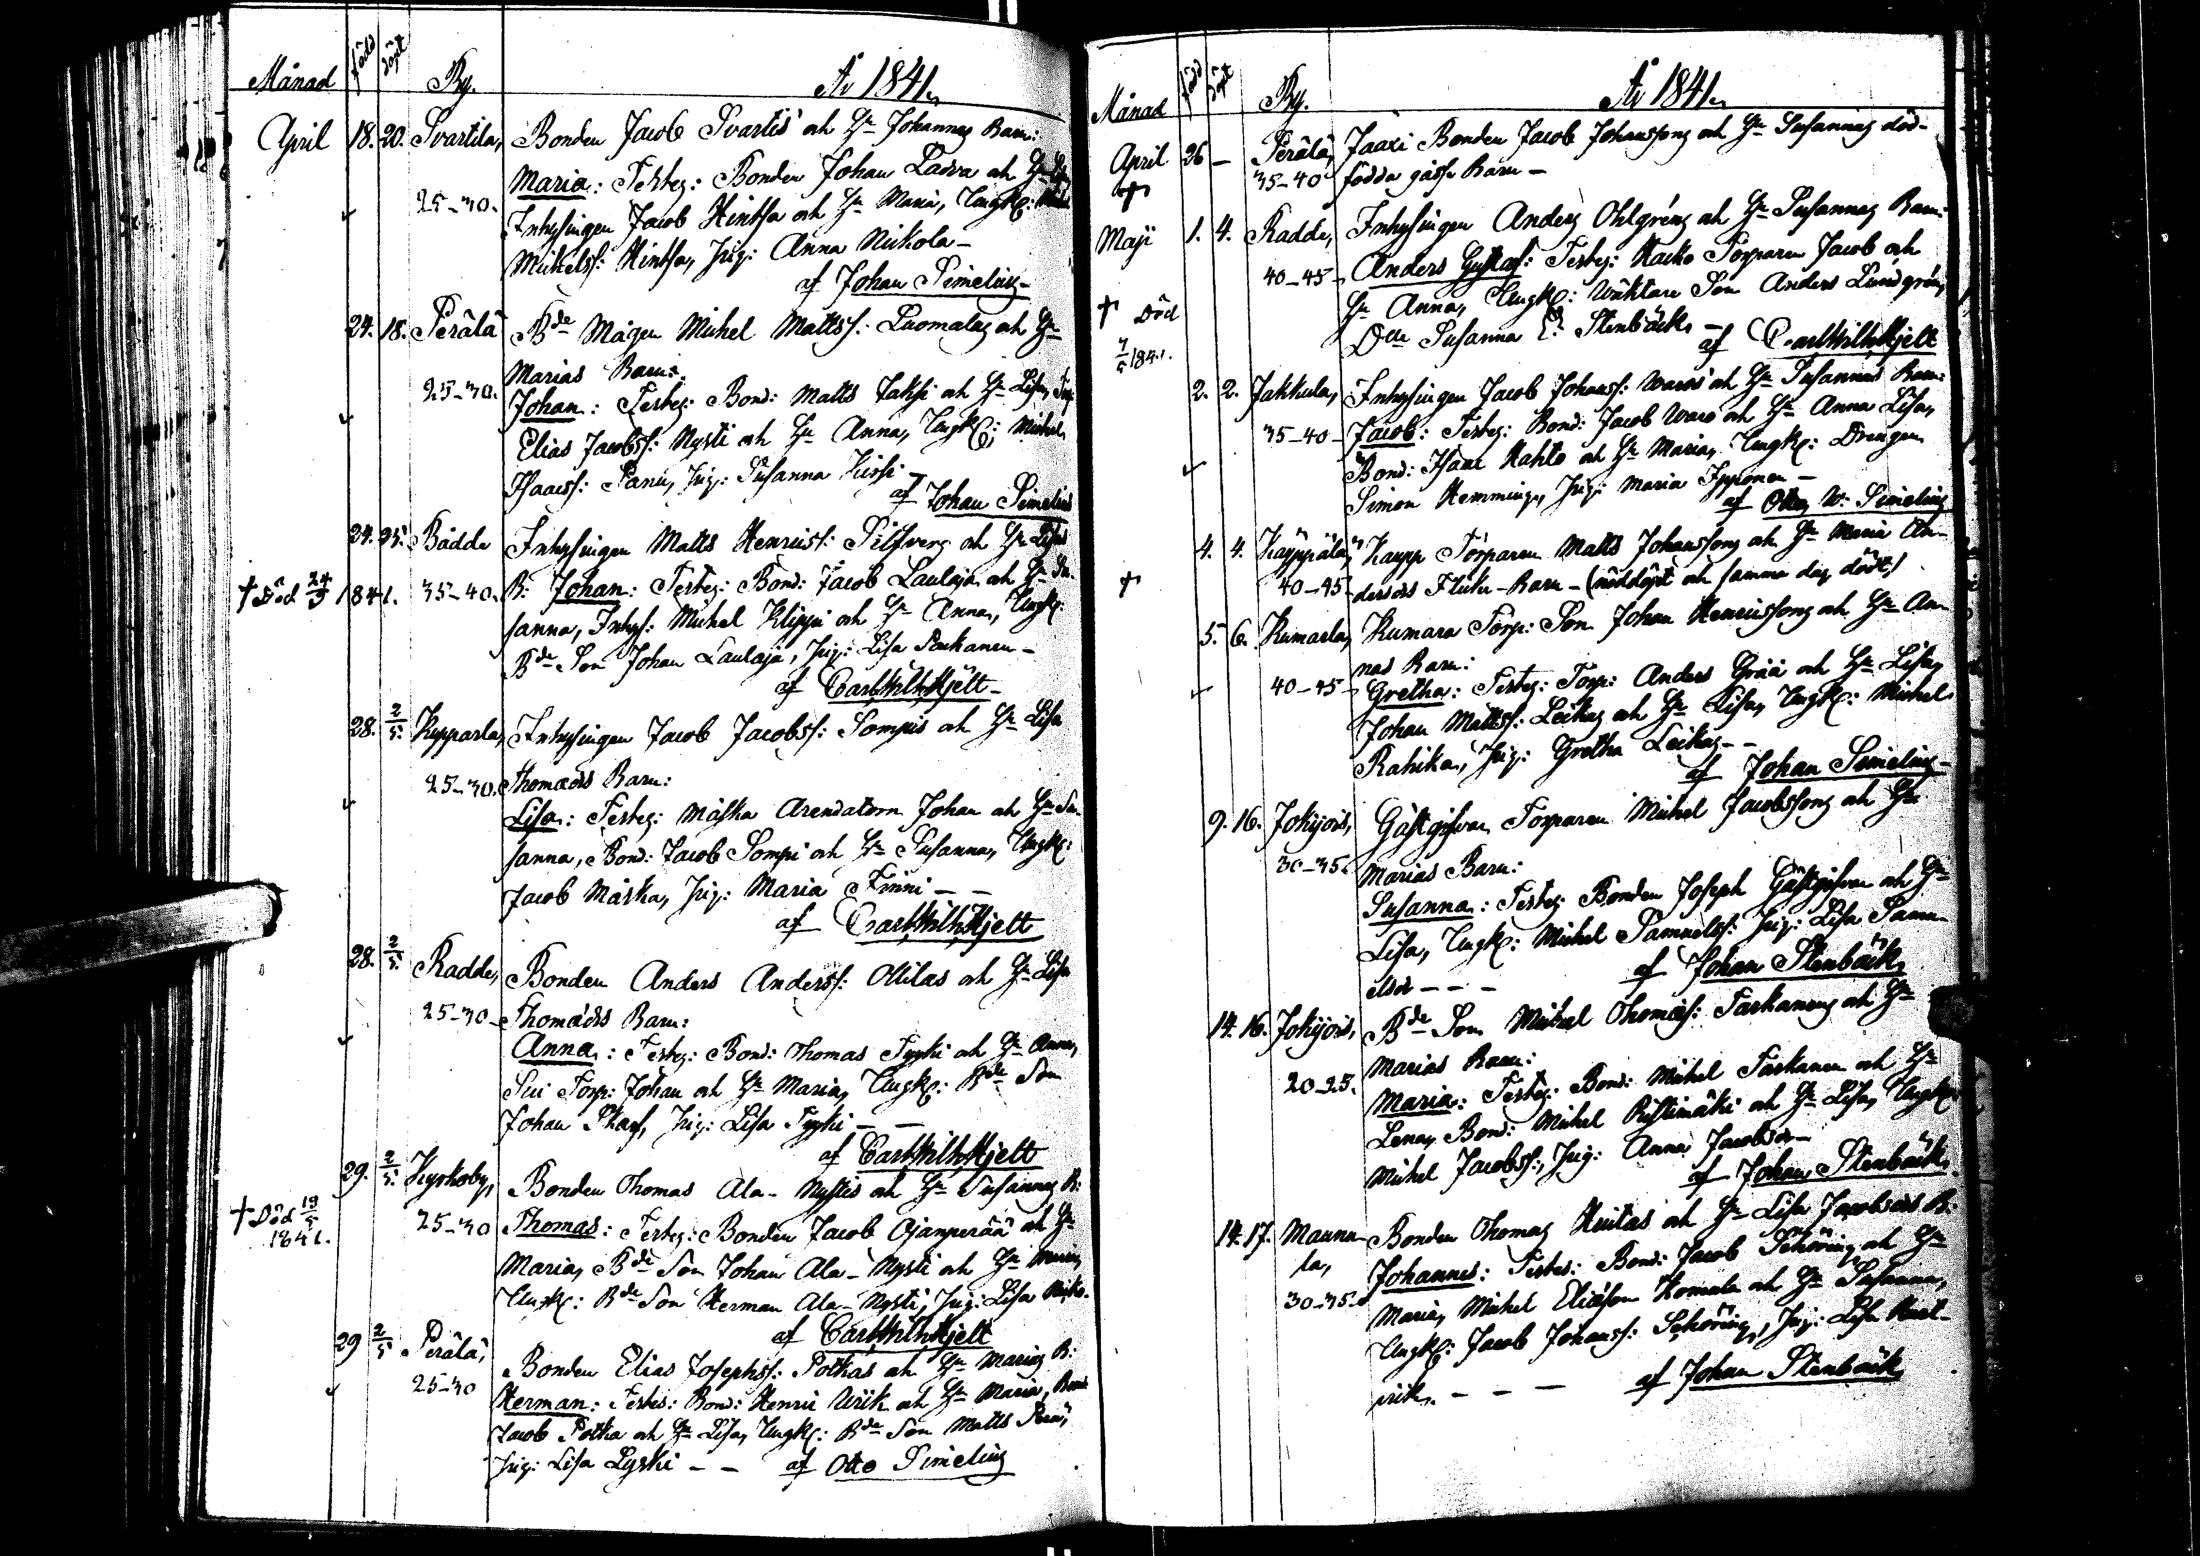 Månad född döpt By. År 1841.
April 18. 20. Svartila, Bonden Jacob Svartis och H. Johannas Barn:
25-30. Maria: Testes: Bonden Johan Lassa och H.
Inhysingen Jacob Hintsa och H. Maria, Ungk:
Michelss: Hintsa, Pig: Anna Nickola -
af Johan Simelius -
24. 18. Perälä Bde Mågen Michel Mattss: Luomalas och H.
Marias Barn:
25-30. Johan: Testes: Bond: Matts Jaksi och H. Lisa,
Elias Jacobss: Nysti och H. Anna, Ungk: Michel
Isaacss: Panu, Pig: Susanna Kirsi -
af Johan Simelius
24. 25. Rådde Inhysingen Matts Henricss: Silfverg och H. Lisas
† Död 24/5 1841. 35-40. B: Johan: Testes: Bond: Jacob Laulaja och H. Su-
sanna, Inhys: Michel Klippi och H. Anna, Ungk:
Bde Son Johan Laulaja, Pig: Lisa Paukanen -
af Carl Wilh. Hjelt -
28. 2/5. Kypparla, Inhysingen Jacob Jacobss: Sompis och H. Lisa
25-30. Thomædrs Barn:
Lisa: Testes: Måska Arendatorn Johan och H. Su-
sanna, Bond: Jacob Sompi och H. Susanna, Ungk:
Jacob Måska, Pig: Maria Finni - -
af Carl Wilh. Hjelt
28. 2/5. Radde, Bonden Anders Anderss: Ollilas och H. Lisa
25-30 Thomædrs Barn:
Anna: Testes: Bond: Thomas Tyyki och H. Anna,
Sui Torp: Johan och H. Maria, Ungk: Bde Son
Johan Skarf, Pig: Lisa Tyyki - -
af Carl Wilh. Hjelt
29. 2/5. Kyrkoby, Bonden Thomas Ala-Nystis och H. Susannas B:
† Död 18/5 1841. 25-30 Thomas: Testes: Bonden Jacob Ojanperää och H.
Maria, Bde Son Johan Ala-Nysti och H. Maria,
Ungk: Bde Son Herman Ala-Nysti, Pig: Lisa
af Carl Wilh. Hjelt
29 2/5 Perälä, Bonden Elias Josephss: Potkas och H. Marias B:
25-30 Herman: Testes: Bond: Henric Wiik och H. Maria, Bond:
Jacob Potka och H. Lisa, Ungk: Bde Son Matts
Pig: Lisa Lyski - - af Otto Simelius
Månad född döpt By. År 1841.
April 26 - Perälä, Jaaxi Bonden Jacob Johanssons och H. Susannas död-
† 35-40 födda gosse Barn -
Maji 1. 4. Radde, Inhysingen Anders Ohlgréns och H. Susannas Barn:
40-45 Anders Gustaf: Testes: Hacko Torparen Jacob och
† Död H. Anna, Ungk: Wäktare Son Anders Lundgrén,
7/5 1841. Dtte Susanna E: Stenbäck - af Carl Wilh. Hjelt
2. 2. Jakkula, Inhysingen Jacob Johanss: Wares och H. Susannas Barn:
35-40 Jacob: Testes: Bond: Jacob Ware och H. Anna Lisa,
Bond: Isaac Kahto och H. Maria, Ungk: Drengen
Simon Hemminge, Pig: Maria Ipponen -
af Otto W. Simelius
4. 4. Käyppälä, Kaupp Torparen Matts Johanssons och H. Maria An-
† 40-45 dersdrs Flicke-Barn - (nöddöpt och samma dag dödt)
5. 6. Kumarla, Kumara Torp: Son Johan Henricssons och H. An-
nas Barn:
40-45 Gretha: Testes: Torp: Anders Gråå och H. Lisa,
Johan Mattss: Leikas och H. Lisa, Ungk: Michel
Rahika, Pig: Gretha Leikas - -
af Johan Simelius -
9. 16. Jokipois, Gästgifvar Torparen Michel Jacobssons och H.
30-35. Marias Barn:
Susanna: Testes: Bonden Joseph Gästgifvar och H.
Lisa, Ungk: Michel Samuelss: Pig: Lisa Samu-
elsdr - - - af Johan Stenbäck
14. 16. Jokipois, Bde Son Michel Thomæs: Tarkanens och H.
Marias Barn:
20-25. Maria: Testes: Bond: Michel Tarkanen och H.
Lena, Bond: Michel Ristimäki och H. Lisa, Ungk:
Michel Jacobss:, Pig: Anna Jacobsdr -
af Johan Stenbäck
14. 17. Mauna- Bonden Thomas Huitas och H. Lisa Jacobsdrs B:
la, Johannes: Testes: Bond: Jacob Schöring och H.
30-35. Maria, Michel Eliæson Homala och H. Susanna,
Ungk: Jacob Johanss: Schöring, Pig: Lisa
- - - af Johan Stenbäck